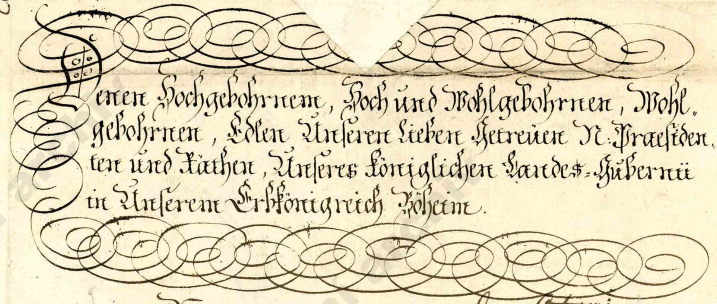 Denen Hochgebohrnem, Hoch und Wohlgebohrnen, Wohl-
gebohrnen, Edlen Unseren Lieben Getreüen N. Præsiden-
ten und Räthen, Unseres Königlichen Landes-Gubernii
in Unserem Erbkönigreich Böheim.